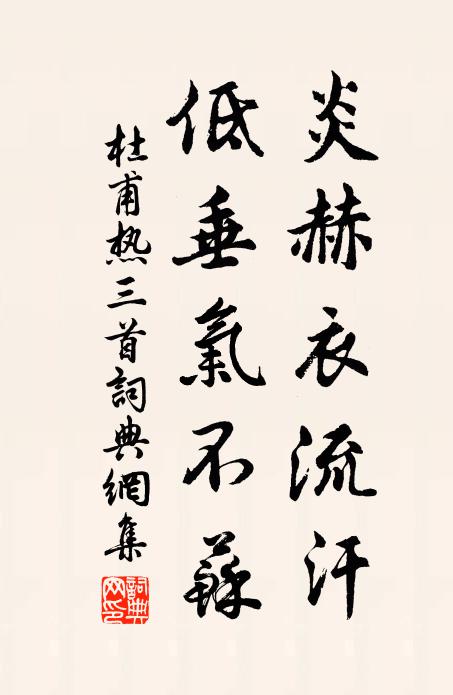 炎赫衣流汗
低垂氣不蘇
杜甫热三首詞典網集
詞典网印